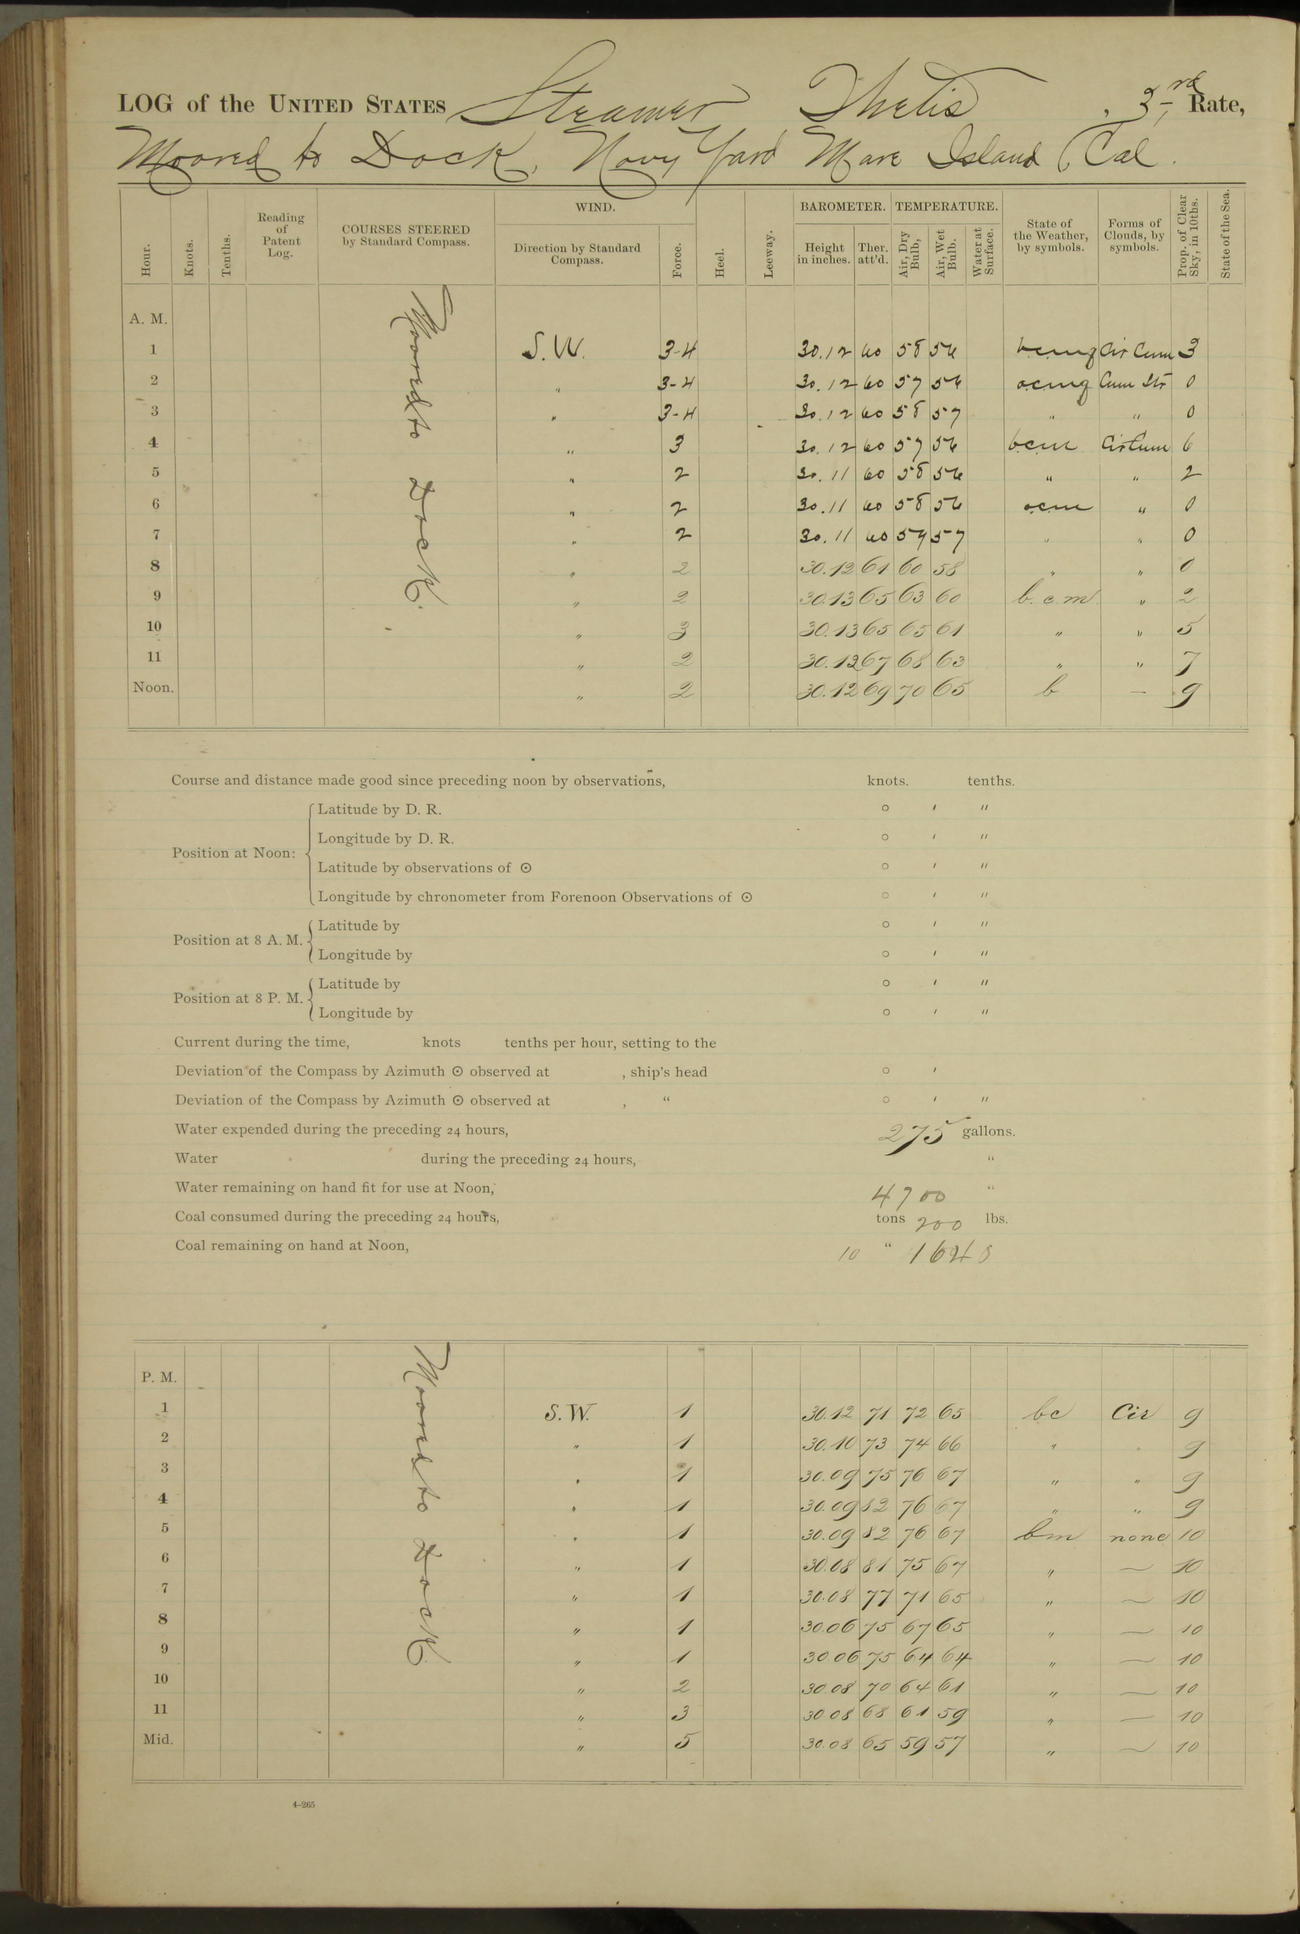 LOG of the UNITED STATES Steamer Thetis, 3rd Rate,
Moored to Dock, Navy Yard Mare Island, Cal.
Hour. Knots. Tenths. Reading of Patent Log. COURSES STEERED by Standard Compass. WIND. Direction by Standard Compass. Force. Heel. Leeway. BAROMETER. Height in inches. Ther. att'd. TEMPERATURE. Air, Dry Bulb, Air, Wet Bulb. Water at Surface. State of the Weather, by symbols. Forms of Clouds, by symbols. Prop. of Clear Sky, in 10ths. State of the Sea.
A. M.
Moored to Dock.
1 S.W. 3-4 30.12 60 58 56 bcmq Cir Cum 3
2 " 3-4 30.12 60 57 56 ocmq Cum Str 0
3 " 3-4 30.12 60 58 57 " " 0
4 " 3 30.12 60 57 56 bcm Cir Cum 6
5 " 2 30.11 60 58 56 " " 2
6 " 2 30.11 60 58 56 ocm " 0
7 " 2 30.11 60 59 57 " " 0
8 " 2 30.12 61 60 58 " " 0
9 " 2 30.13 65 63 60 b.c.m. " 2
10 " 3 30.13 65 65 61 " " 5
11 " 2 30.12 67 68 63 " " 7
Noon. " 2 30.12 69 70 65 b — 9
Course and distance made good since preceding noon by observations, knots. tenths.
Position at Noon:
Latitude by D. R. ° ′ ″
Longitude by D. R. ° ′ ″
Latitude by observations of ☉ ° ′ ″
Longitude by chronometer from Forenoon Observations of ☉ ° ′ ″
Position at 8 A. M.
Latitude by ° ′ ″
Longitude by ° ′ ″
Position at 8 P. M.
Latitude by ° ′ ″
Longitude by ° ′ ″
Current during the time, knots tenths per hour, setting to the
Deviation of the Compass by Azimuth ☉ observed at , ship's head ° ′
Deviation of the Compass by Azimuth ☉ observed at , " ° ′ ″
Water expended during the preceding 24 hours, 275 gallons.
Water during the preceding 24 hours, "
Water remaining on hand fit for use at Noon, 4700 "
Coal consumed during the preceding 24 hours, tons 200 lbs.
Coal remaining on hand at Noon, 10 " 1648
P. M.
Moored to Dock
1 S.W. 1 30.12 71 72 65 bc Cir 9
2 " 1 30.10 73 74 66 " " 9
3 " 1 30.09 75 76 67 " " 9
4 " 1 30.09 82 76 67 " " 9
5 " 1 30.09 82 76 67 bm none 10
6 " 1 30.08 81 75 67 " — 10
7 " 1 30.08 77 71 65 " — 10
8 " 1 30.06 75 67 65 " — 10
9 " 1 30.06 75 64 64 " — 10
10 " 2 30.08 70 64 61 " — 10
11 " 3 30.08 68 61 59 " — 10
Mid. " 5 30.08 65 59 57 " — 10
4–265